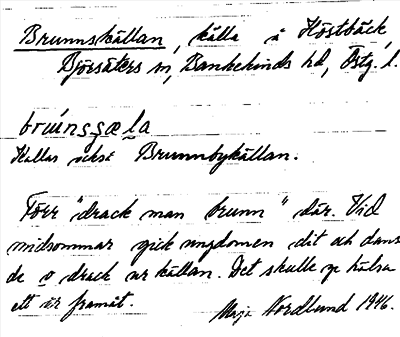 Brunnskällan, källa å Höstbäck,
Björsäters sn, Bankekinds hd, Östg. l.
Kallas också Brunnbykällan.
Förr "drack man brunn" där. Vid
midsommar gick ungdomen dit och dansa
de o drack ur källan. Det skulle ge hälsa
ett år framåt.
Maja Nordlund 1946.